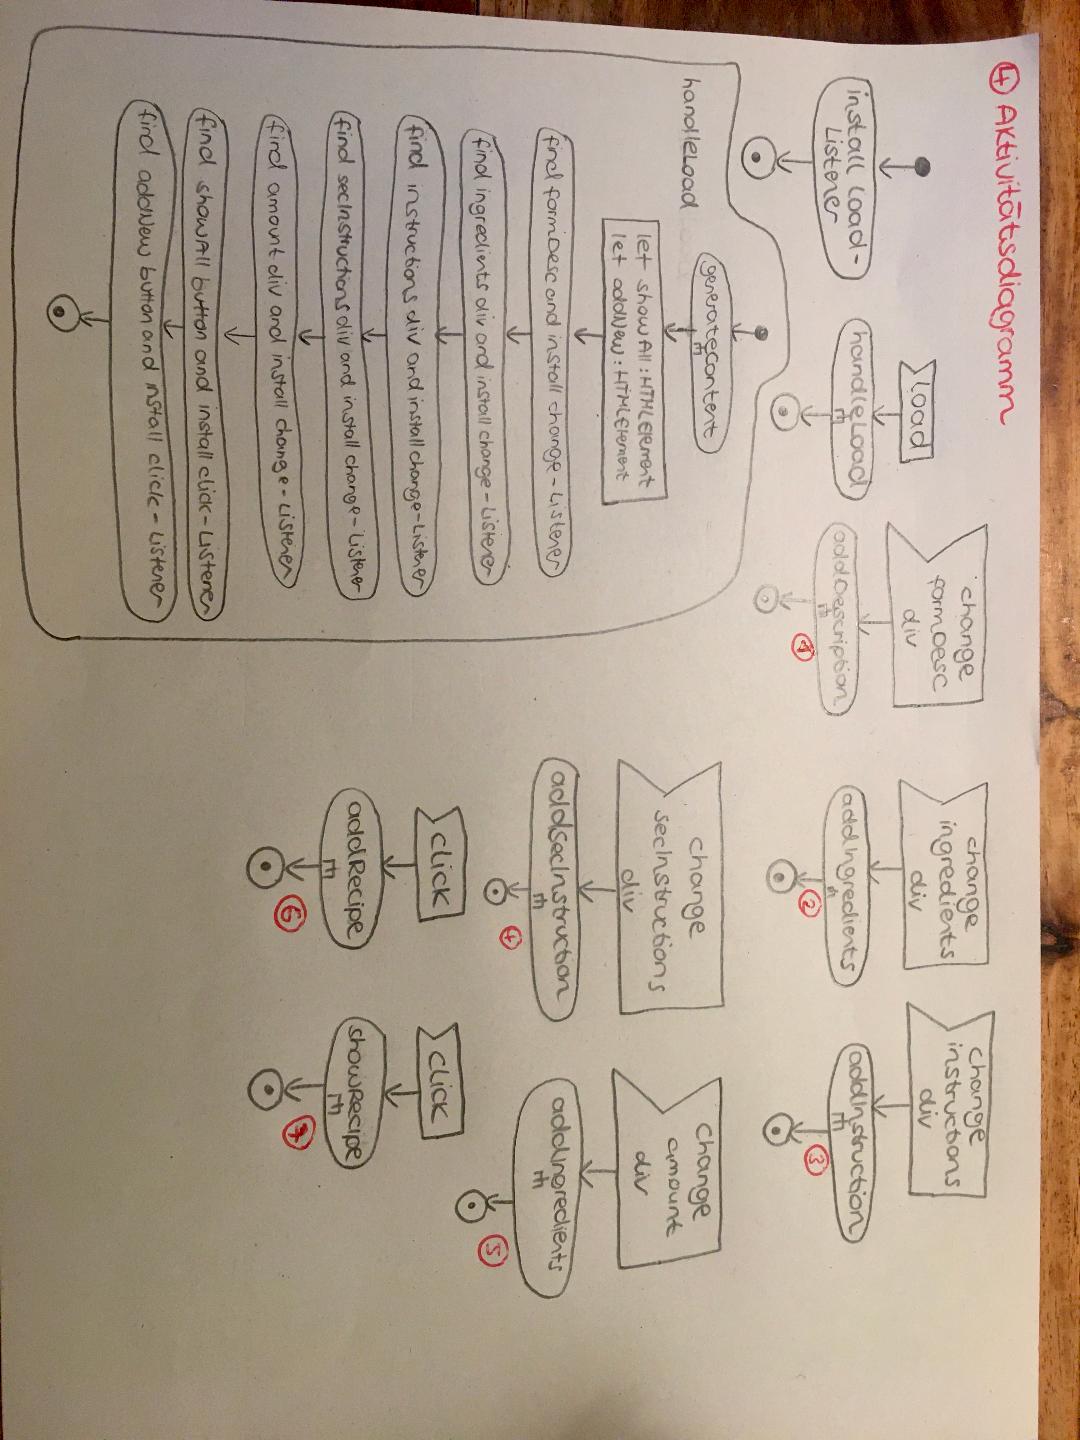 ④ Aktivitätsdiagramm
install load-
Listener
load
handleLoad
change
formDesc
div
addDescription
①
change
ingredients
div
addIngredients
②
change
instructions
div
addInstruction
③
handleLoad
generateContent
let showAll : HTMLElement
let addNew : HTMLElement
find formDesc and install change-Listener
find ingredients div and install change-Listener
find instructions div and install change-Listener
find secInstructions div and install change-Listener
find amount div and install change-Listener
find showAll button and install click-Listener
find addNew button and install click-Listener
change
secInstructions
div
addSecInstruction
④
change
amount
div
addIngredients
⑤
click
addRecipe
⑥
click
showRecipe
⑦